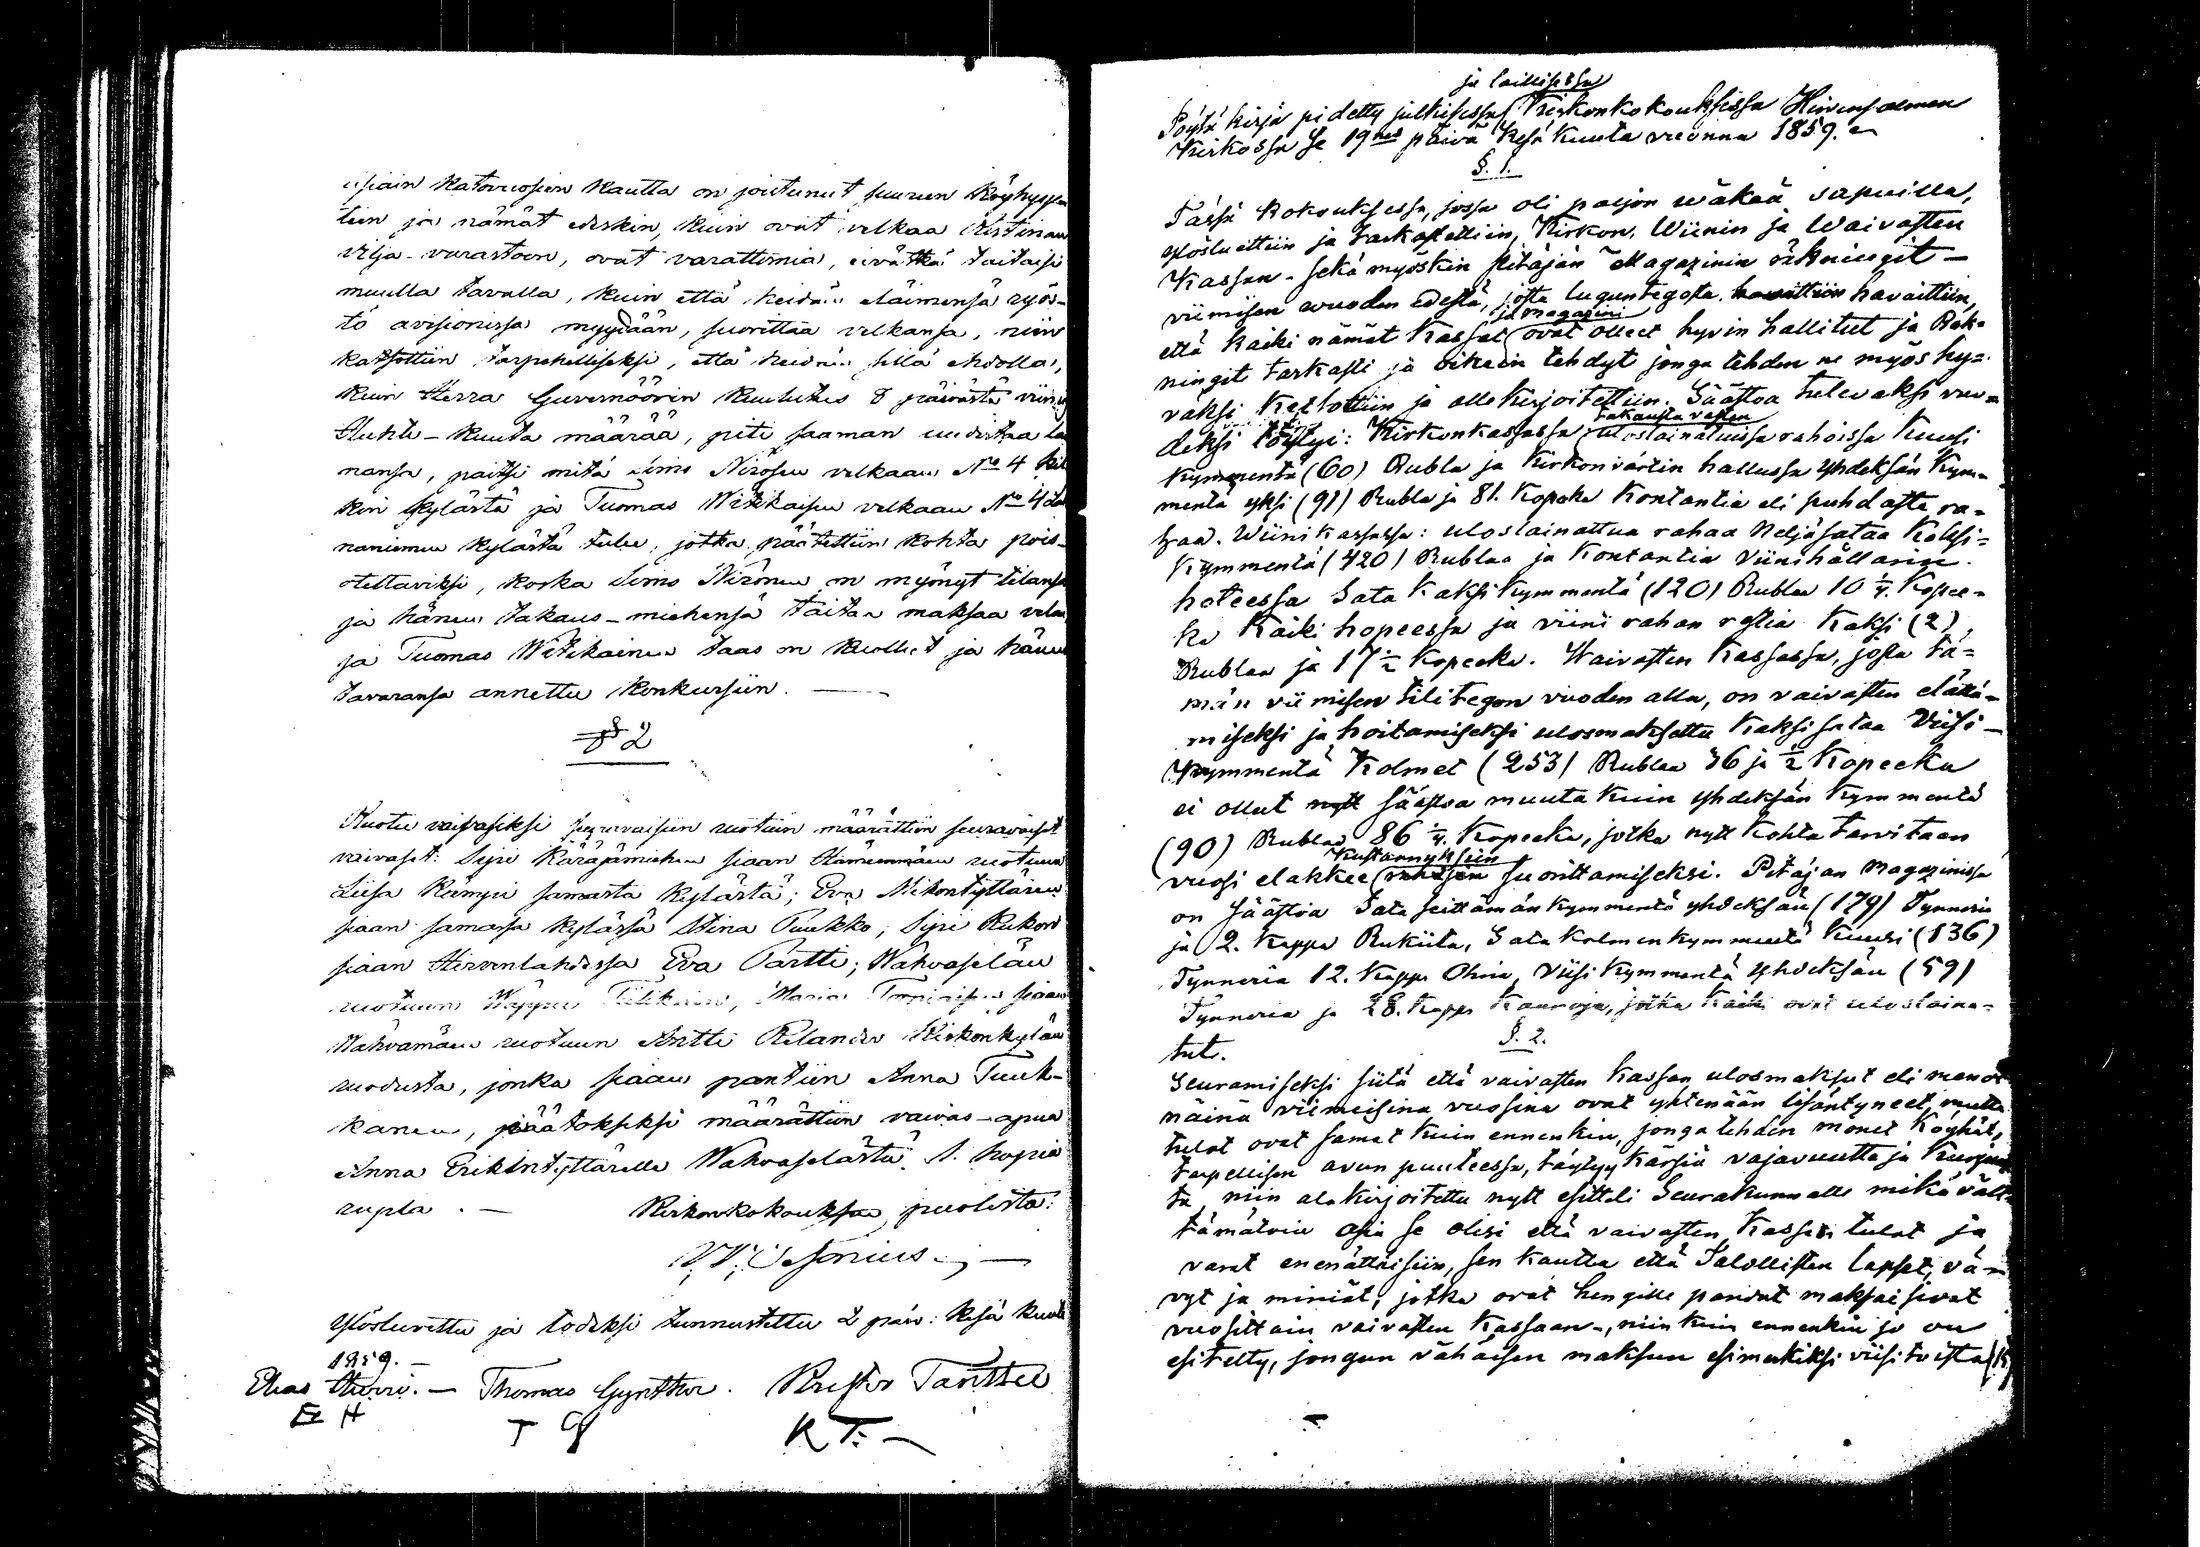 usiain katovuosien kautta on joutunut suureen köyhyy-
teen ja nämät etenkin, kuin ovat velkaa Pitäjän
vilja-varastoon, ovat varattomia, eivätkä taitaisi
muulla tavalla, kuin että heidän eläimensä ryös-
tö avisionissa myydään, suorittaa velkansa, niin
katsottiin tarpehelliseksi, että heidän sillä ehdolla,
kuin Herra Guvernöörin Kuulutus 8 päivästä viim
Huhti-kuuta määrää, piti saaman uudistaa lai
nansa, paitsi mitä Simo Nirosen velkaan No 4
kin kylästä ja Tuomas Witikaisen velkaan No 4
naniemen kylästä tulee, jotka päätettiin kohta pois-
otettaviksi, koska Simo Nironen on myönyt tilansa
ja hänen takaus-miehensä taitaa maksaa velan
ja Tuomas Witikainen taas on kuollut ja hänen
tavaransa annettu konkurssiin. —
§ 2
Ruotu vaivasiksi seuraavaisiin ruotuin määrättiin seuraavaiset
vaivaset: Sipi Käräjämiehen siaan Hämeenmäen ruotuun
Liisa Kämpi samasta kylästä; Eva Mikontyttären
siaan samassa kylässä Stina Puukko, Sipi Kukon
siaan Hirvenlahdessa Eva Partti; Wahvaselän
ruotuun Wappu Tiilikain, Maria siaan
Wahvamäen ruotuun Antti Relander Kirkonkylän
ruodusta, jonka siaan pantiin Anna Tuuk-
kanen, päätökseksi määrättiin vaivas-apua
Anna Erikintyttärelle Wahvaselästä 1. hopia
rupla. — Kirkonkokouksen puolesta:
Ylösluettu ja todeksi tunnustettu 2 päiv: Kesä kuuta
1859. —
Elias Hirvi. — Thomas Gynther. Krister Tanttu
E H T G K T. —
ja laillisessa
Pöytä kirja pidetty julkisessa Kirkonkokouksessa Hirvensalmen
Kirkossa se 19nes päivä Kesä Kuuta vuonna 1859.
§. 1.
Tässä Kokouksessa, jossa oli paljon wäkeä sapuilla,
ylösluettiin ja tarkastettiin, Kirkon, Wiinin ja Waivasten
Kassan - sekä myöskin pitäjän Magazinin räkningit —
viimeisen wuoden edestä, josta luguntegosta havaittiin havaittiin,
ja magazini
että kaiki nämät Kassat ovat olleet hyvin hallitut ja Räk-
ningit tarkasti ja oikein tehdyt jonga tehden ne myös hy-
väksi Keitottiin ja alle Kirjoitettiin. Säästöa tulevaksi vuo-
takausta vasten
deksi löyttyi: Kirkonkassassa uloslainatuissa rahoissa Kuusi
kymmentä (60) Rubla ja Kirkonvärtin hallussa yhdeksän kym-
mentä yksi (91) Rubla ja 81. Kopeka Kontantia eli puhdasta ra-
haa. Wiinikassassa: uloslainattua rahaa Neljäsataa Kaksi-
Kymmentä (420) Rublaa ja Kontantia Viinihållarin
hoteessa Sata Kaksi Kymmentä (120) Rublaa 10 1/4. Kopee-
ka Kaiki hopeessa ja viini rahan restia Kaksi (2)
Rublaa ja 17 1/2 Kopeeka. Waivasten Kassassa, josta tä-
män viimeisen tilitegon vuoden alla, on vaivasten elättä-
miseksi ja hoitamiseksi ulosmaksettu Kaksisataa Viisi-
Kymmentä Kolmet (253) Rublaa 36 ja 1/2 Kopeeka
ei ollut nytt säästöa muuta kuin yhdeksän Kymmentä
(90) Rublaa 86 1/4. Kopeeka, jotka nytt Kohta tarvitaan
Kustannuksiin
vuosi elakkee rahasen suorittamiseksi. Pitäjan Magazinissa
on Säästöa Sata seittämän kymmentä yhdeksän (179) Tynneria
ja 2. Kappa Rukiita, Sata kolmenkymmentä Kuusi (136)
Tynneria 12. Kappa Ohria, Viisi Kymmentä yhdeksän (59)
Tynneria ja 28. Kappa Kauroja, jotka Kaiki ovat uloslaina-
tut.
§. 2.
Seuramiseksi siitä että vaivasten Kassan ulosmaksut eli menot
näinä viimeisinä vuosina ovat yhtenään lisäntyneet, mutta
tulot ovat samat kuin ennenkin, jonga tehden monet Köyhät,
tarpellisen avun puuteessa, täytyy kärsiä vajavuutta ja Kurjuut-
ta, niin alakirjoitettu nytt esitteli Seurakunnalle mikä vält-
tämätoin asia se olisi että vaivasten Kassan tulot ja
varat enenättäisiin, sen kautta että Talollisten lapset, vä-
vyt ja miniät, jotka ovat hengille pandut maksaisivat
vuosittain vaivasten Kassaan, niin kuin ennenkin jo on
esitelty, jongun vähäisen maksun esimerkiksi viisitoista (15)